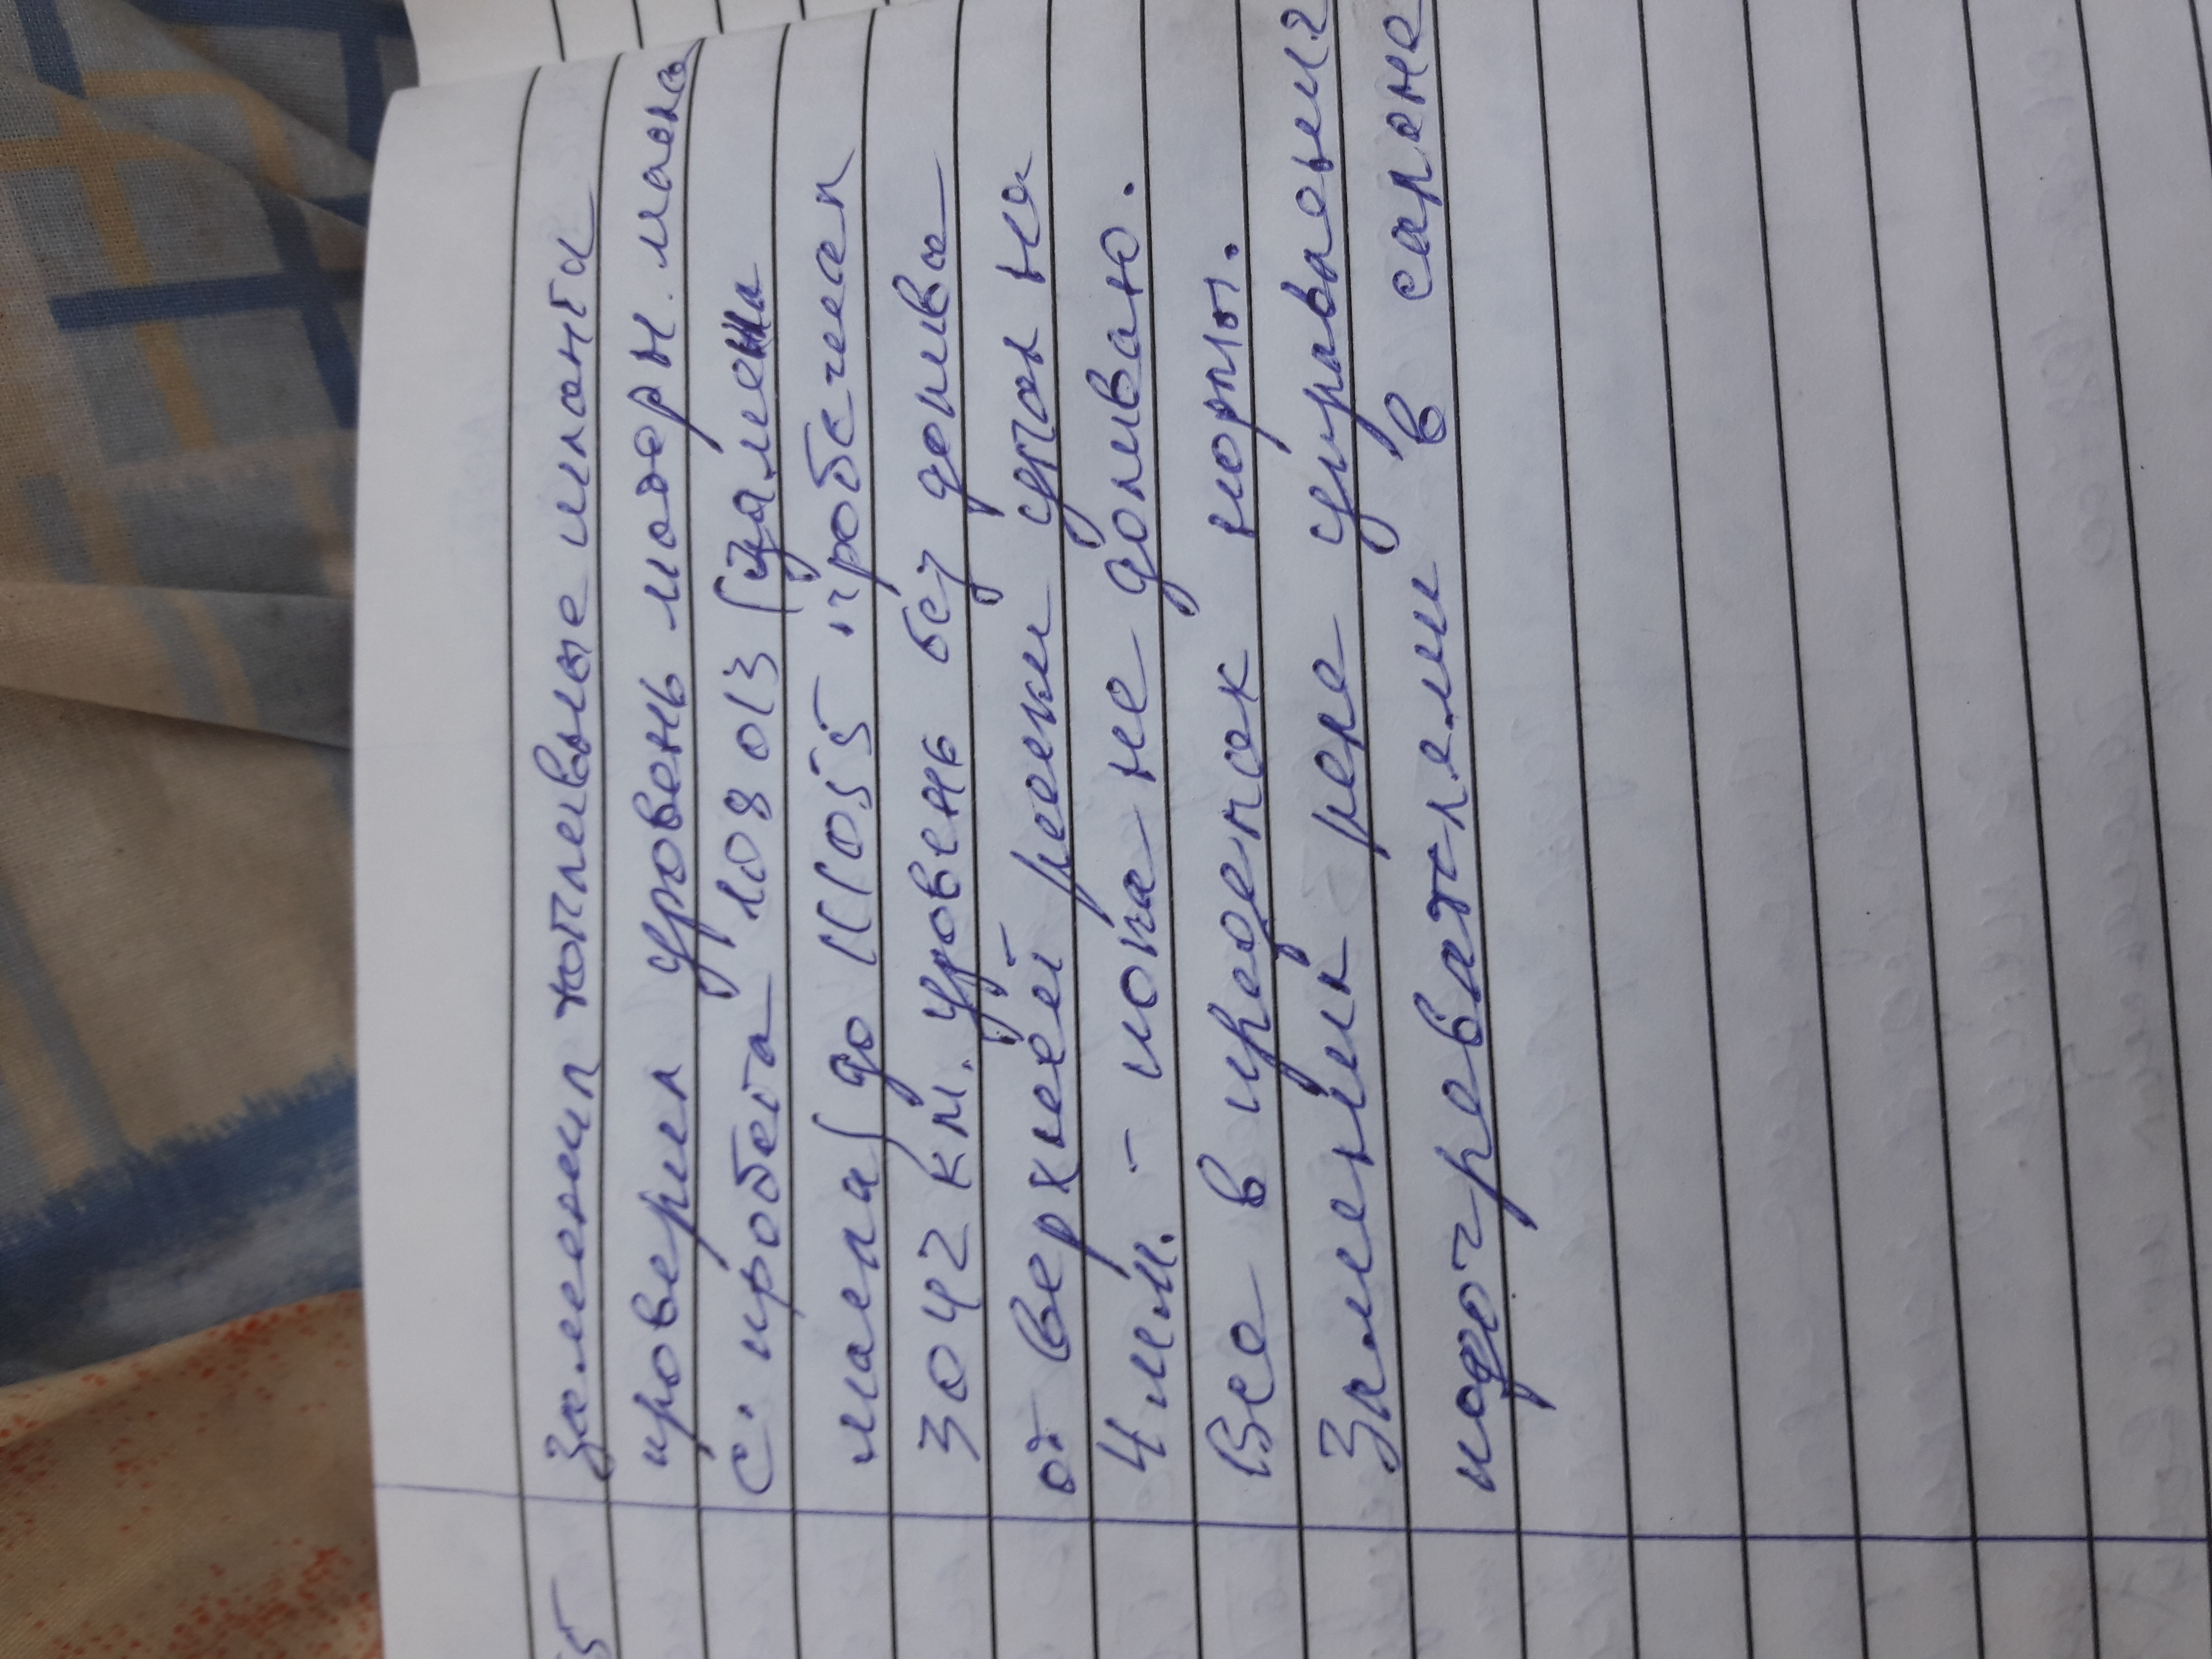 5 Заменил топливные шланги
проверил уровень моторн. масла
с. пробега 108013 (замена
масла) до 111055 пробежал
3042 км. уровень без долива
от верхней риски упал на
4 мм. - пока не доливаю.
Все в пределах нормы.
Заменил реле управления
подогревателем в салоне